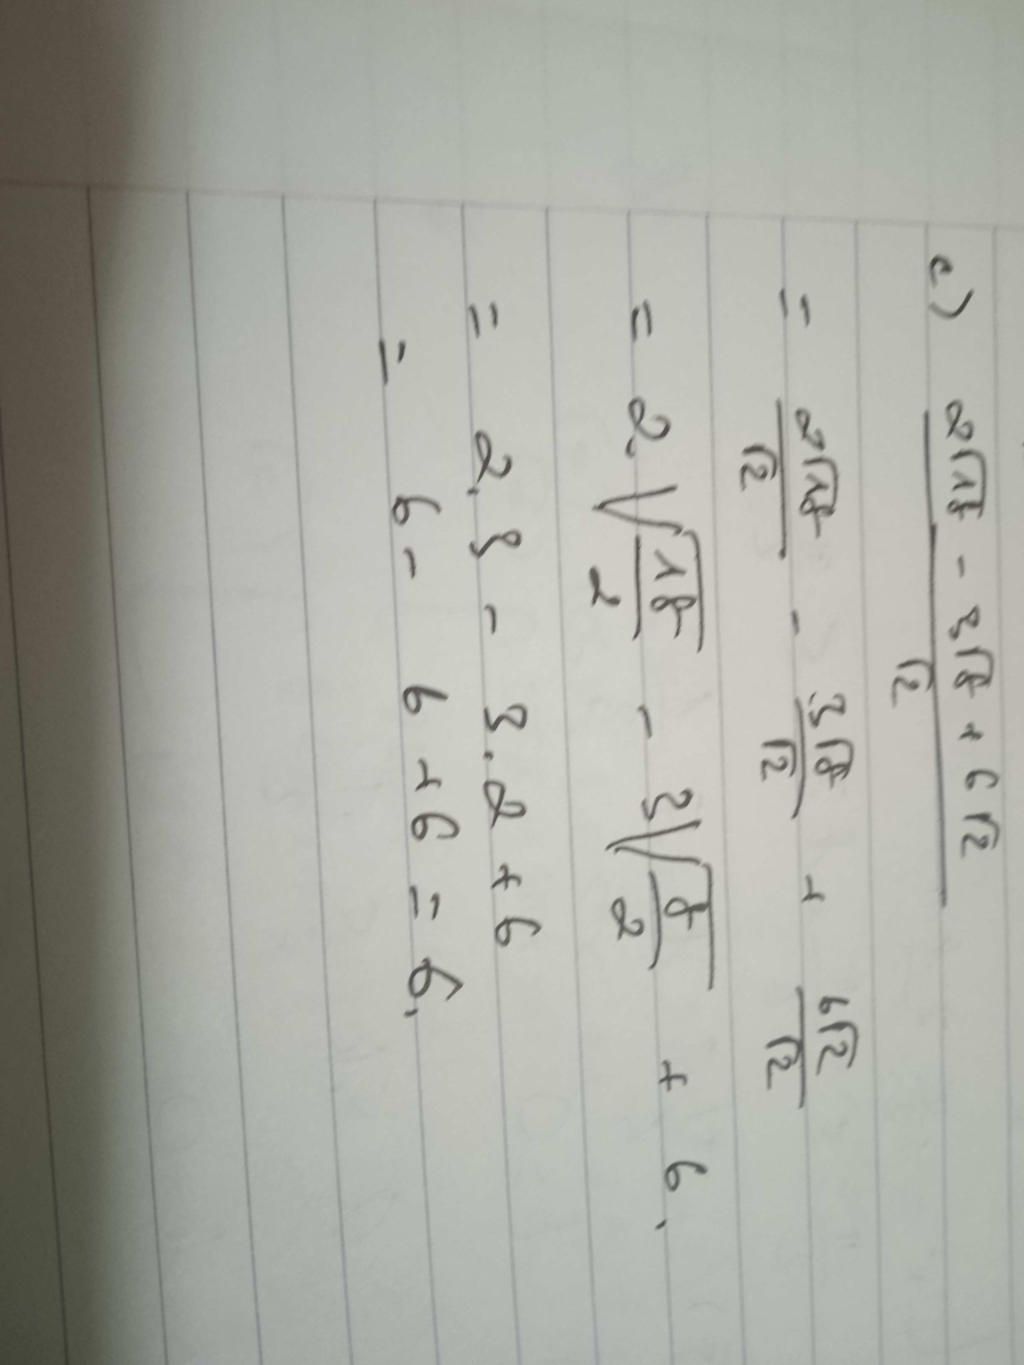 c) (2√18 - 3√8 + 6√2)/√2
= 2√18/√2 - 3√8/√2 + 6√2/√2
= 2.√(18/2) - 3√(8/2) + 6.
= 2.3 - 3.2 + 6
= 6 - 6 + 6 = 6.